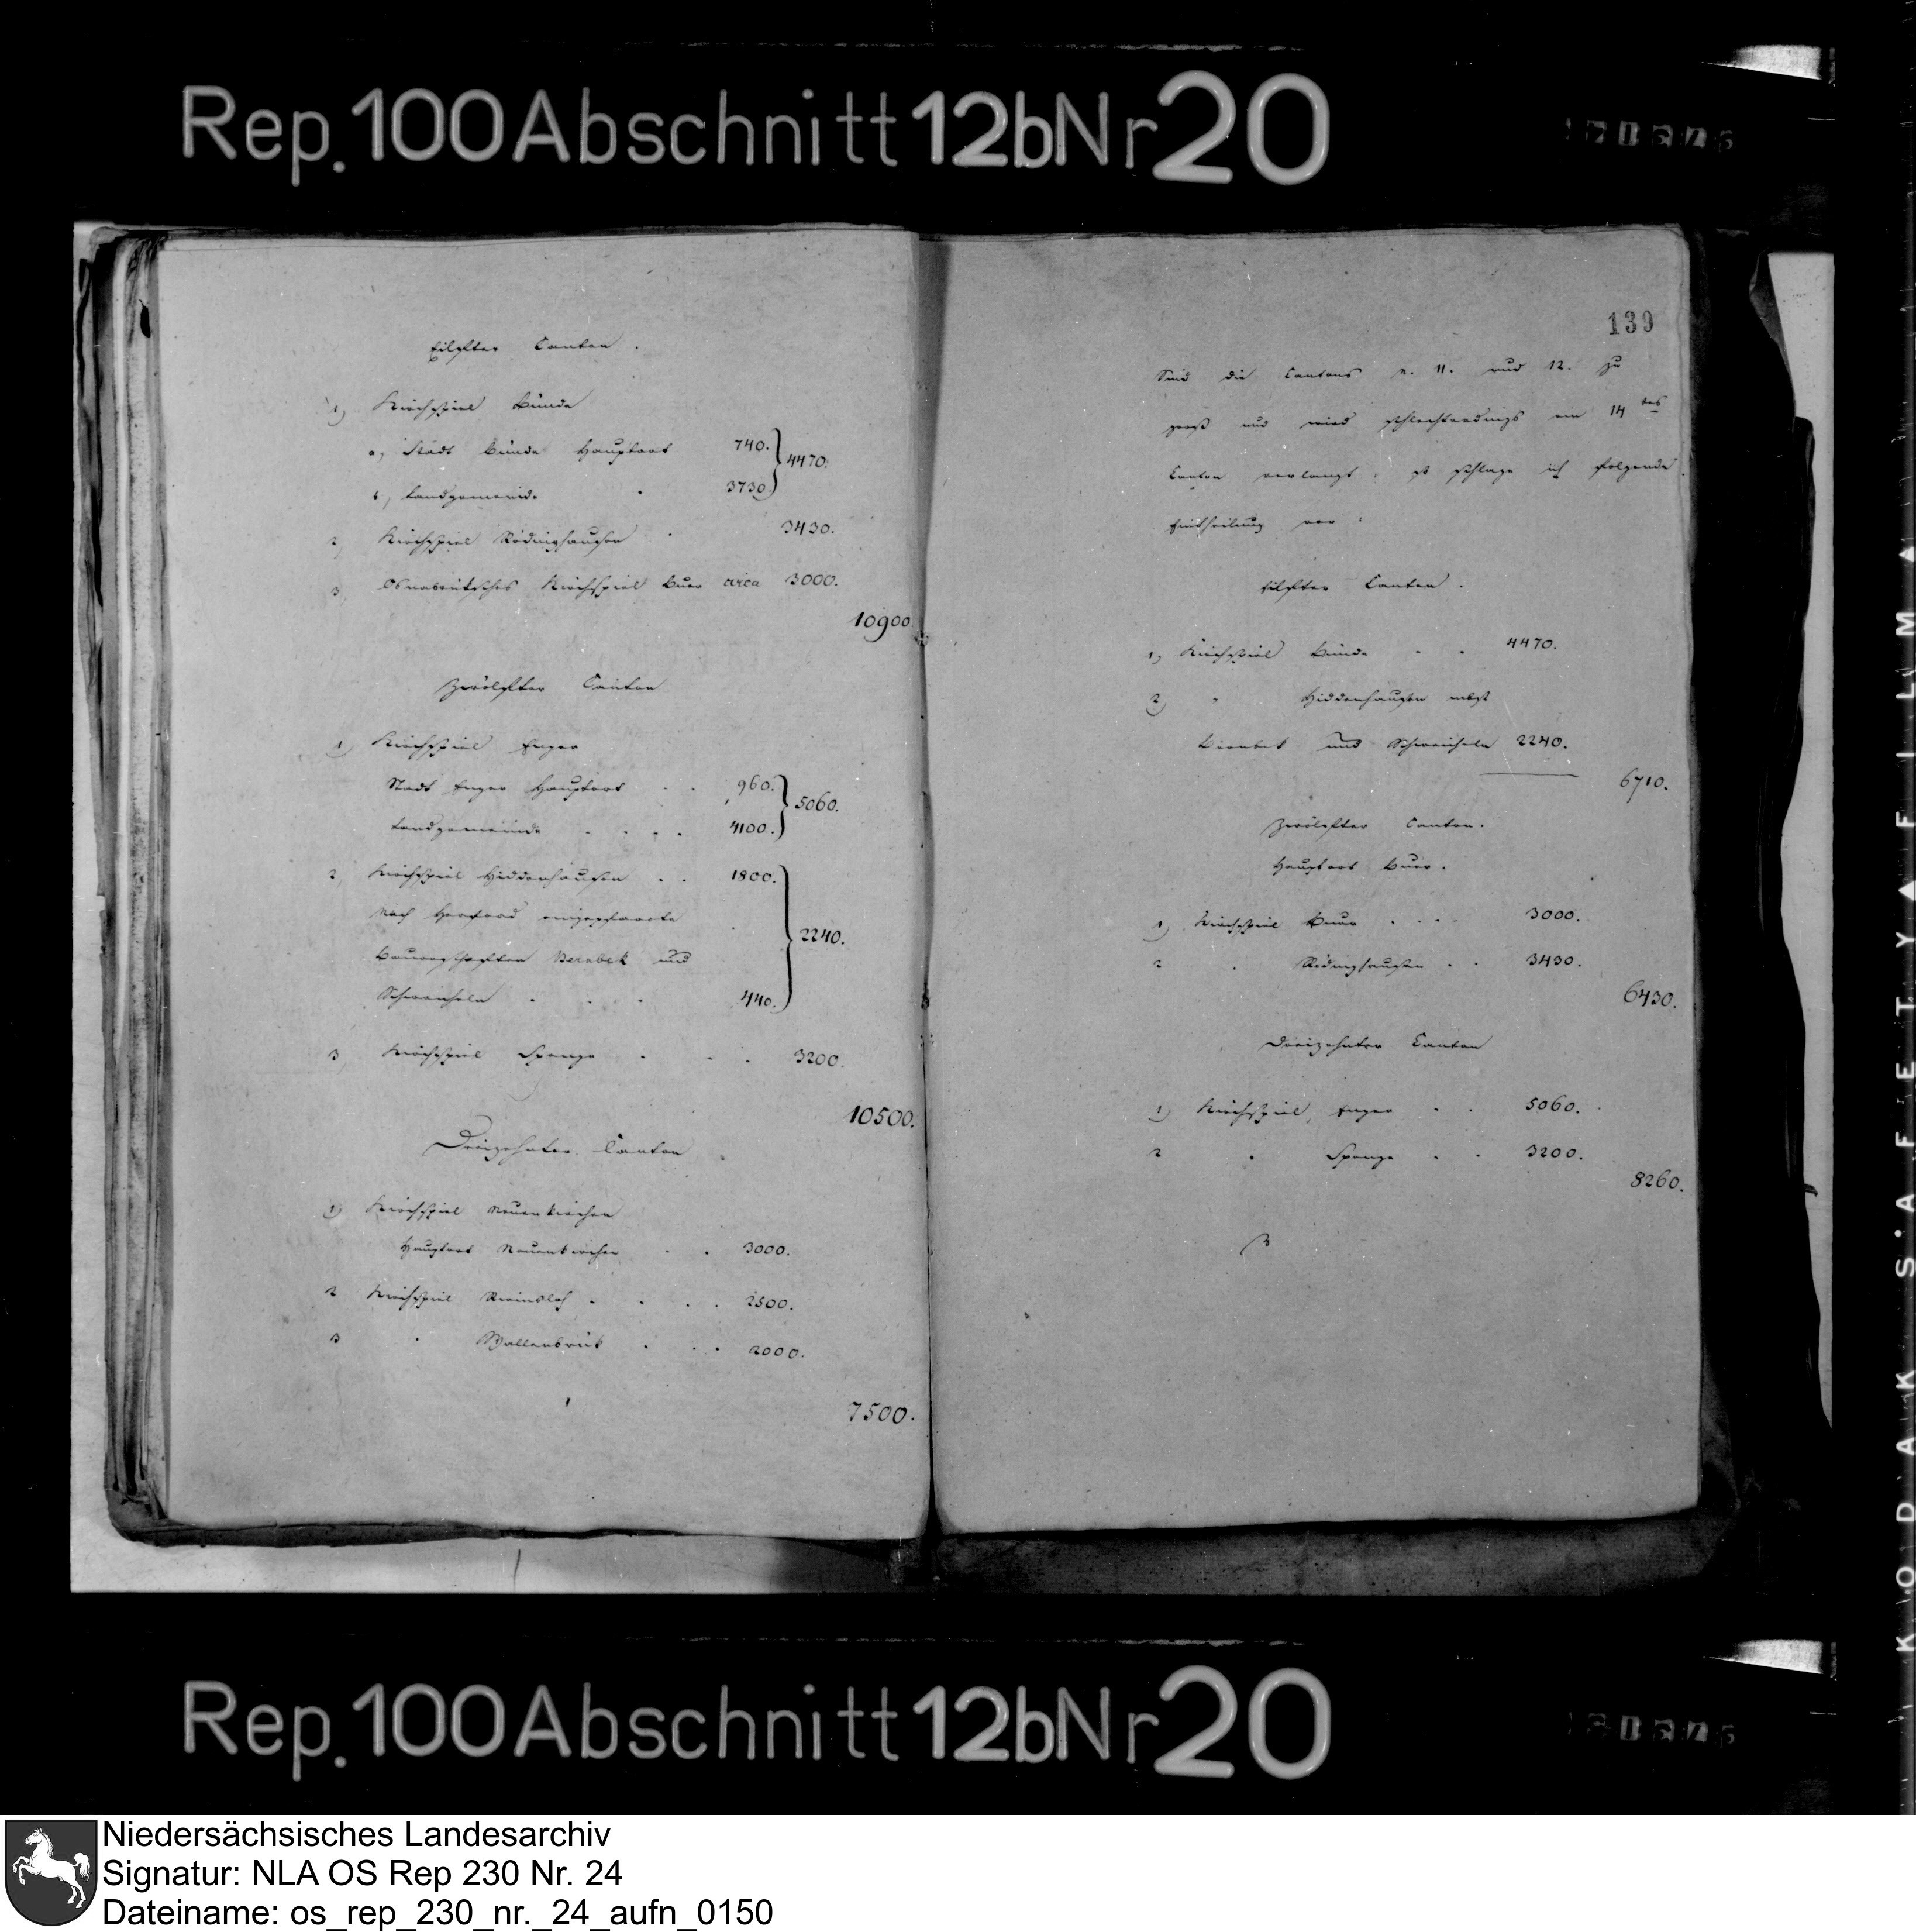 Rep. 100 Abschnitt 12b Nr 20
Eilfter Canton.
1) Kirchspiel Bünde
a, Stadt Bünde Hauptort 740. } 4470.
b, Landgemeinde . 3730. }
2, Kirchspiel Rödinghausen . 3430.
3, Osnabrücksches Kirchspiel Buer circa 3000.
10900.
Zwölfter Canton
1) Kirchspiel Enger
Stadt Enger Hauptort . . 960. } 5060.
Landgemeinde . . . . 4100. }
2, Kirchspiel Hiddenhausen . . 1800.
nach Herford eingepfarrte
Bauerschaften Bermbek und } 2240.
Schweicheln . . . 440.
3, Kirchspiel Spenge . . . 3200.
10500.
Dreizehnter Canton
1) Kirchspiel Neuenkirchen
Hauptort Neuenkirchen . . 3000.
2 Kirchspiel Riemsloh . . . . 2500.
3 " Wallenbrük . . . 2000.
7500.
139
Sind die Cantons n. 11. und 12. zu
groß und wird schlechterdings ein 14tes
Canton verlangt, so schlage ich folgende
Eintheilung vor:
Eilfter Canton.
1, Kirchspiel Bünde . . 4470.
2) " Hiddenhausen nebst
Bermbek und Schweicheln 2240.
6710.
Zwölfter Canton.
Hauptort Buer.
1) Kirchspiel Buer . . . . 3000.
2 " Rödinghausen . . 3430.
6430.
Dreizehnter Canton
1) Kirchspiel Enger . . 5060.
2 " Spenge . . 3200.
8260.
KODAK SAFETY FILM
Rep. 100 Abschnitt 12b Nr 20
Niedersächsisches Landesarchiv
Signatur: NLA OS Rep 230 Nr. 24
Dateiname: os_rep_230_nr._24_aufn_0150